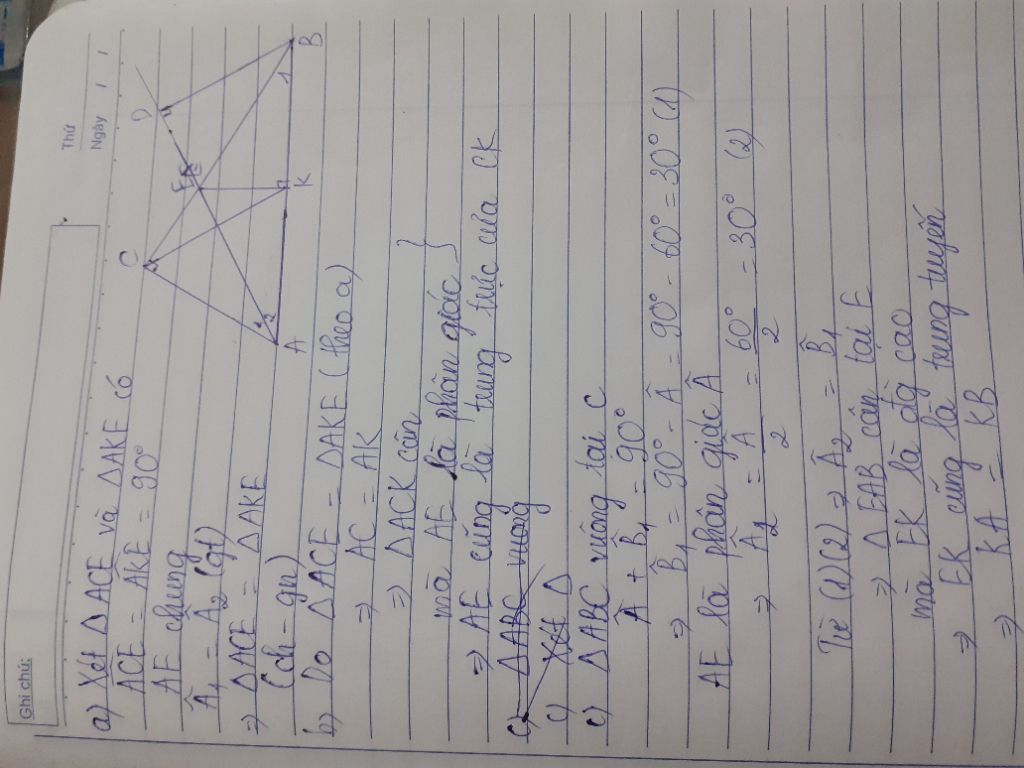 Ghi chú:
Thứ
Ngày / /
a) Xét Δ ACE và Δ AKE có
ACE = AKE = 90°
AE chung
Â₁ = Â₂ (gt)
⇒ Δ ACE = Δ AKE
(ch - gn)
C
E
D
A
2
K
1
B
b) Do Δ ACE = Δ AKE (theo a)
⇒ AC = AK
⇒ Δ ACK cân
mà AE là phân giác }
⇒ AE cũng là trung trực của CK
c) Δ ABC vuông
c) Xét Δ
c) Δ ABC vuông tại C
Â + B̂₁ = 90°
⇒ B̂₁ = 90° - Â = 90° - 60° = 30° (1)
AE là phân giác Â
⇒ Â₂ = Â/2 = 60°/2 = 30° (2)
Từ (1)(2) ⇒ Â₂ = B̂₁
⇒ Δ EAB cân tại E
mà EK là đg cao
⇒ EK cũng là trung tuyến
⇒ KA = KB